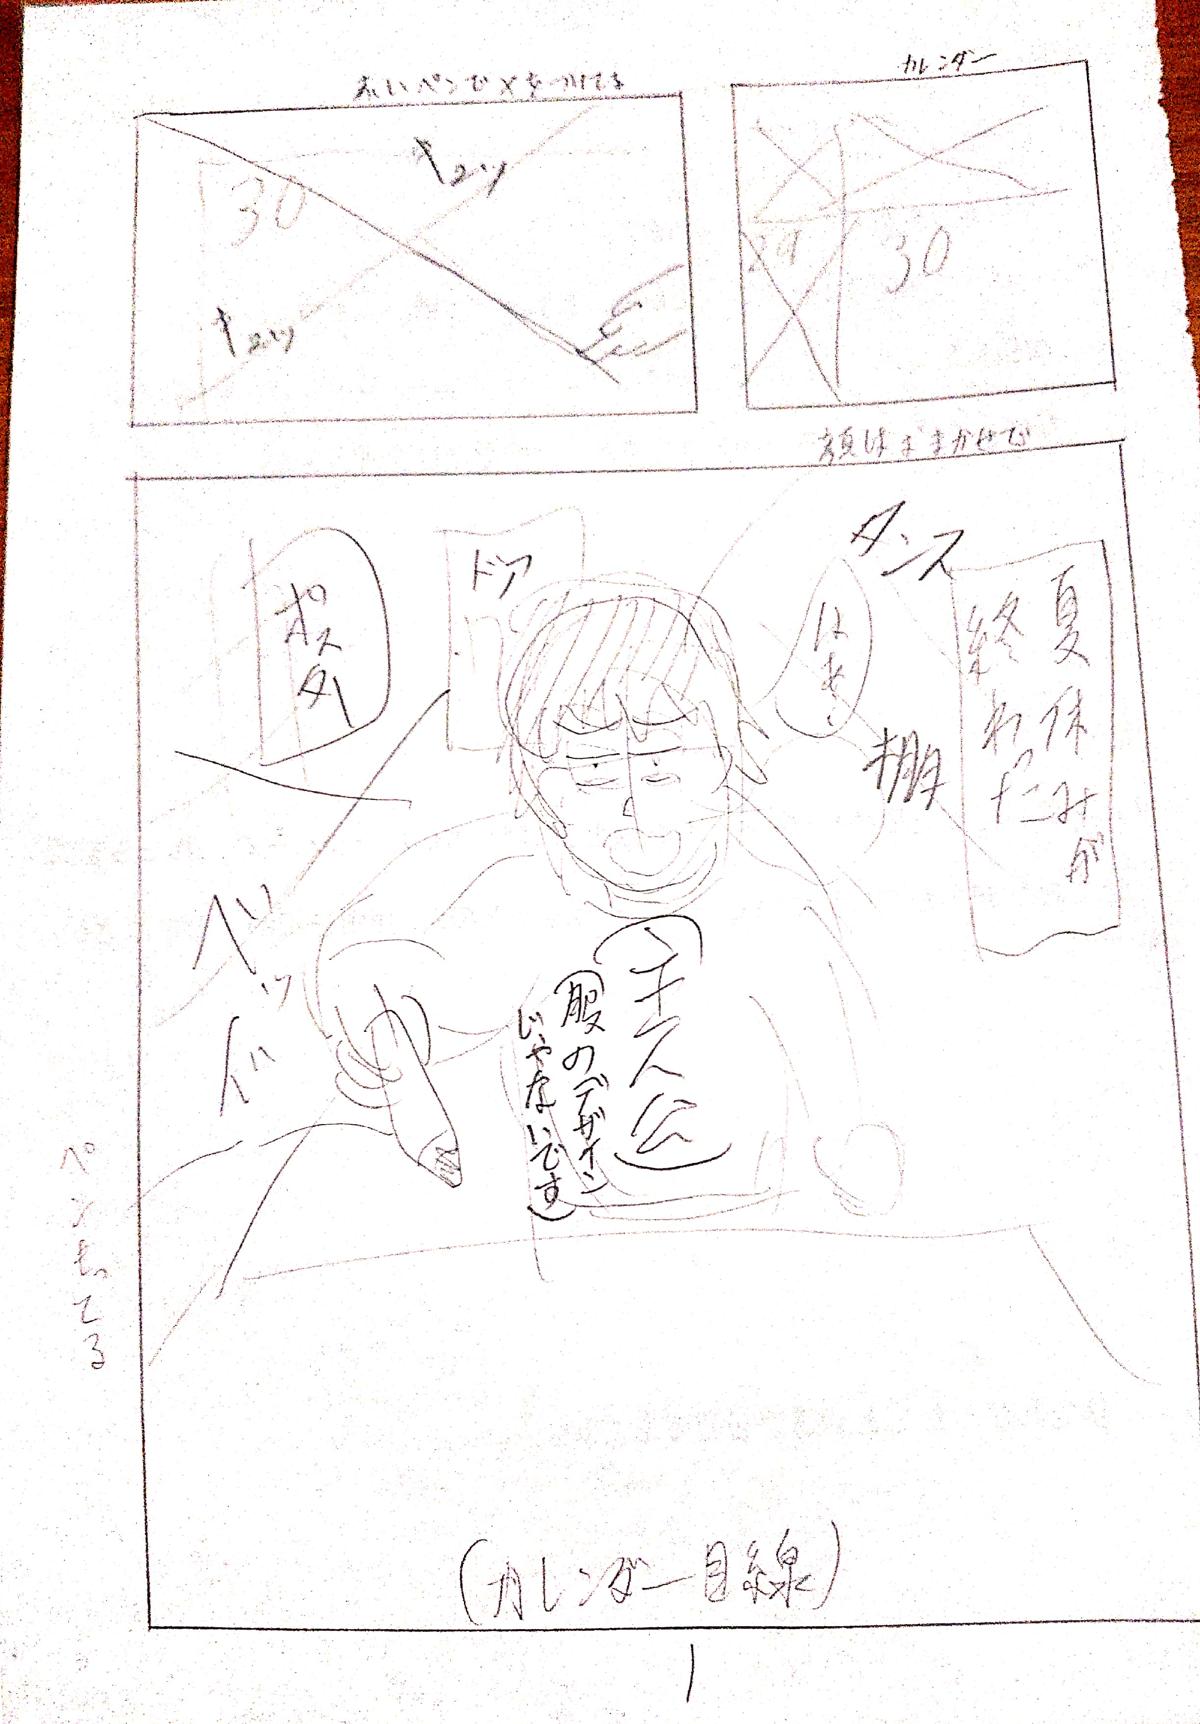 カレンダー
29
30
赤いペンで×をつけてる
30
キュッ
キュッ
顔はおまかせで
夏休みが
終わった
タンス
はぁ、
棚
ドア
ポスター
ベッド
ペンもってる
(主人公)
(服のデザイン
じゃないです)
(カレンダー目線)
1